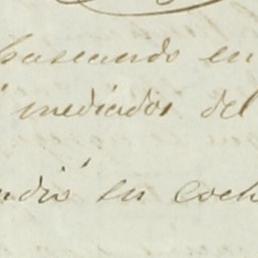 paseando en
mediados del
ndió en coch